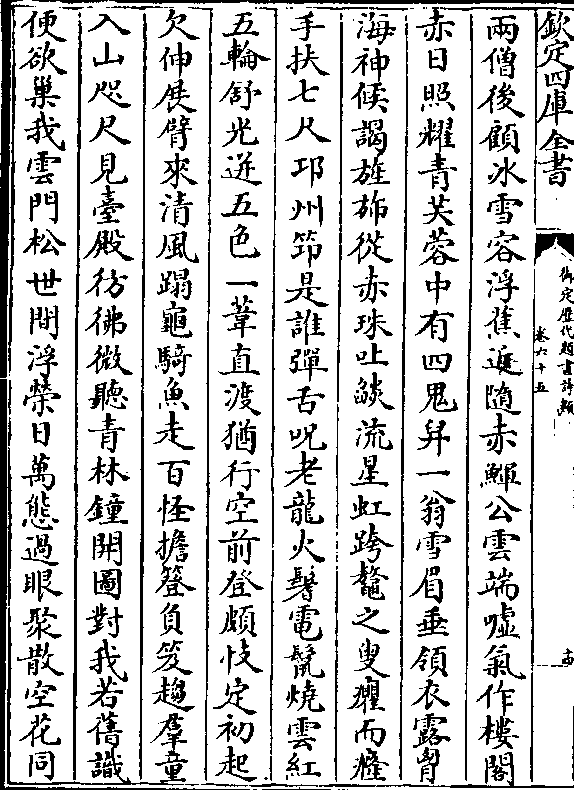 欽定四庫全書
御定歴代題畫詩類
卷六十五
兩僧後顧冰雪容浮蕉近隨赤鯶公雲端噓氣作樓閣
赤日照耀青芙蓉中有四鬼舁一翁雪眉垂領衣露胷
海神候謁旌斾從赤珠吐燄流星虹跨鼇之叟癯而癃
手扶七尺邛州笻是誰彈舌呪老龍火鬐電鬛燒雲紅
五輪舒光迸五色一葦直渡猶行空前登頗忮定初起
欠伸展臂來清風蹋龜騎魚走百怪擔簦負笈趨羣童
入山咫尺見臺殿彷彿微聽青林鐘開圖對我若舊識
便欲巢我雲門松世間浮榮日萬態過眼聚散空花同